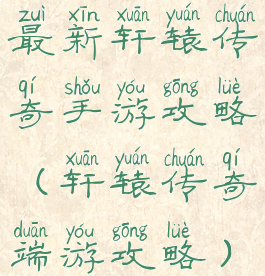 zuì xīn xuān yuán chuán
最新轩辕传
qí shǒu yóu gōng lüè
奇手游攻略
xuān yuán chuán qí
（轩辕传奇
duān yóu gōng lüè
端游攻略）